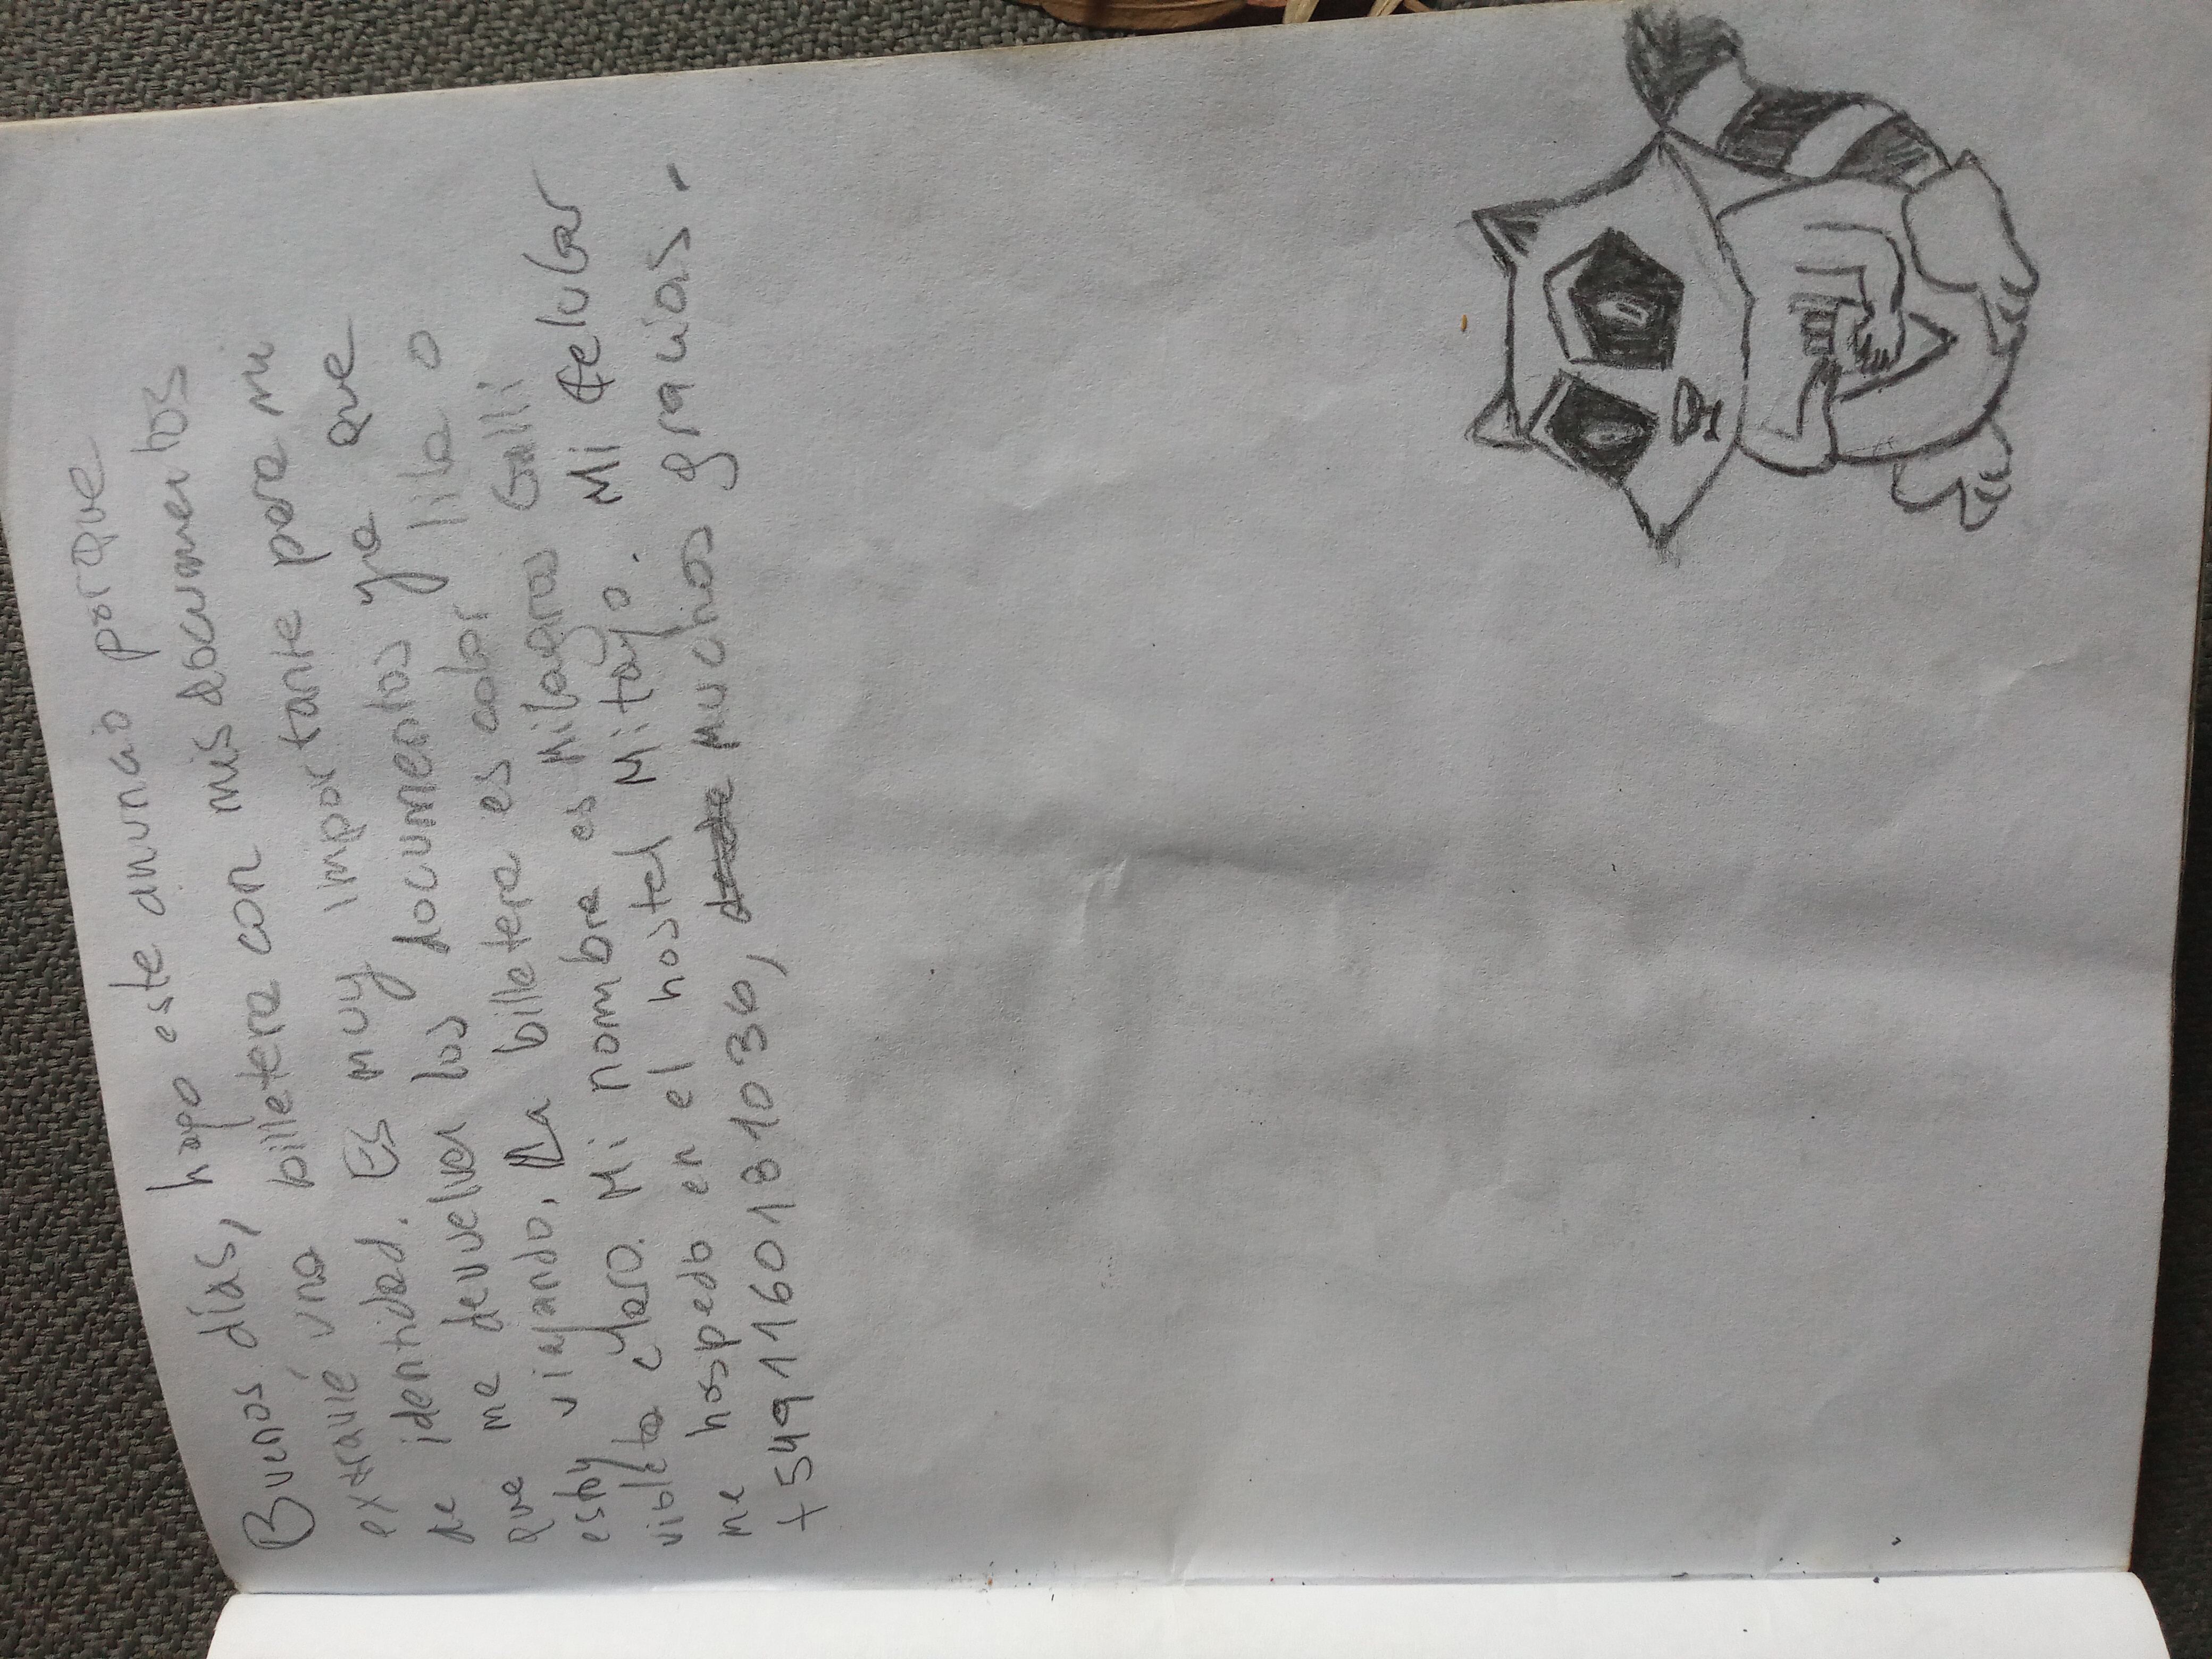 Buenos días, hago este anuncio porque
extravié una billetera con mis documentos
de identidad. Es muy importante para mi
que me devuelvan los documentos ya que
estoy viajando. La billetera es color lila o
violeta claro. Mi nombre es Milagros Galli
me hospedo en el hostel Mitayo. Mi celular
+5491160181036, Muchas gracias.